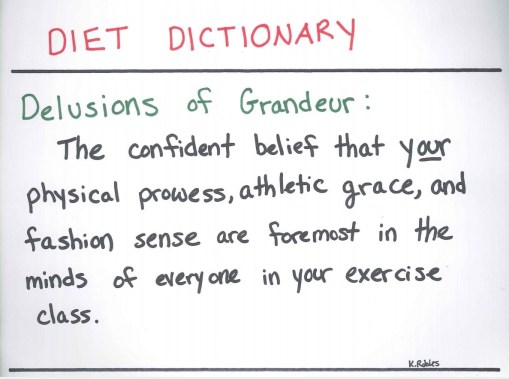 DIET DICTIONARY
Delusions of Grandeur:
The confident belief that your
physical prowess, athletic grace, and
fashion sense are foremost in the
minds of everyone in your exercise
class.
K.Robles